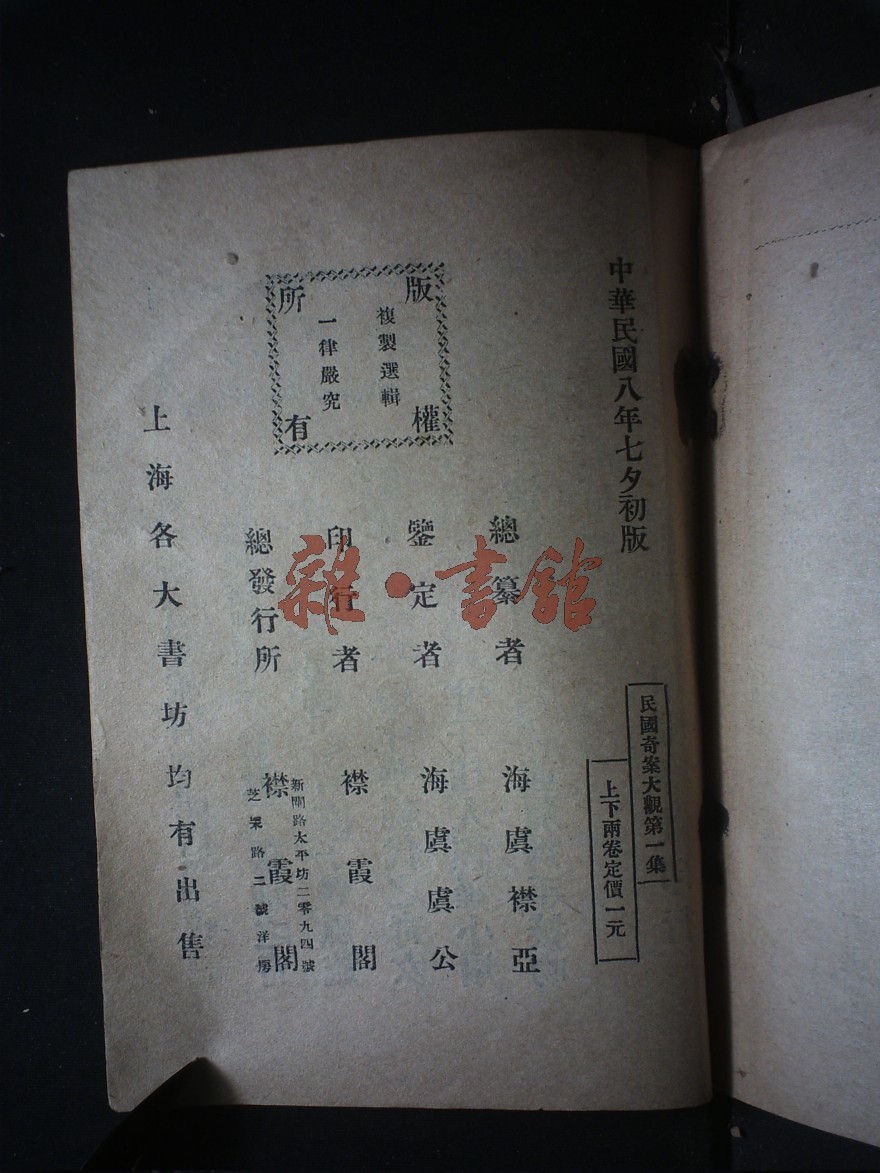 中華民國八年七夕初版
民國奇案大觀第一集
上下兩卷定價一元
總纂者 海虞襟亞
鑒定者 海虞虞公
印行者 襟霞閣
總發行所 襟霞閣
新閘路太平坊二零九四號
芝罘路二號洋房
版權所有
複製選輯
一律嚴究
上海各大書坊均有出售
雜·書館